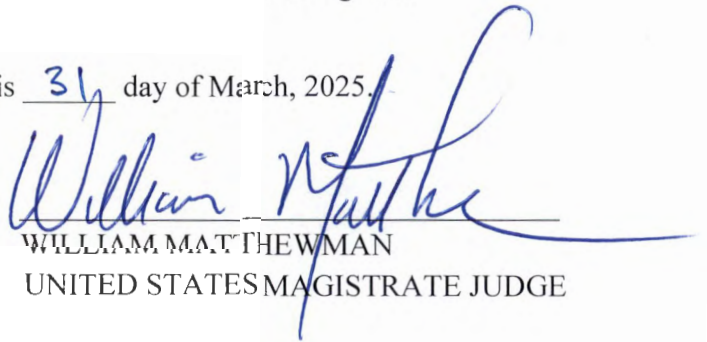 is 31 day of March, 2025.
William Matthe
WILLIAM MATTHEWMAN
UNITED STATES MAGISTRATE JUDGE